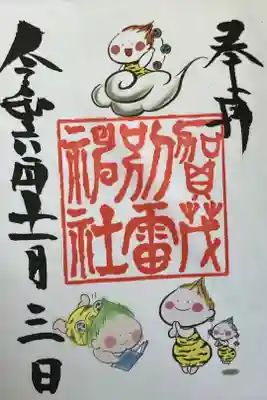 奉拝
賀茂
別雷
神社
令和六年十一月三日